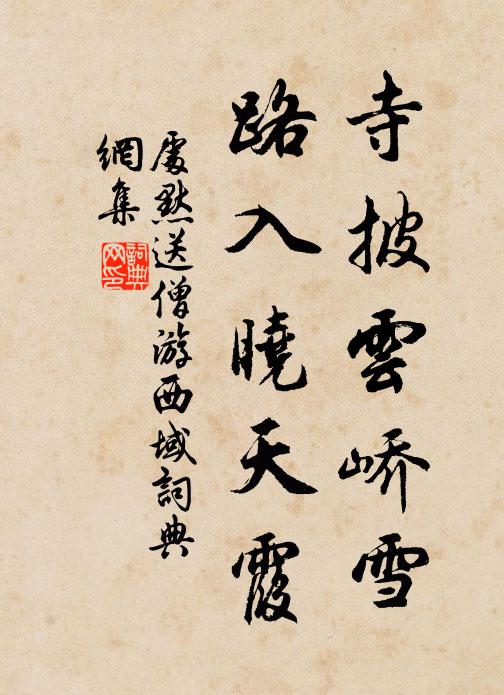 寺披雲嶠雪
路入曉天霞
處默送僧游西域詞典
網集
詞典
网印